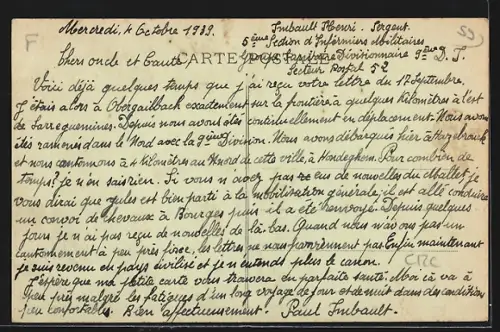 Mercredi, 4 Octobre 1939.
Imbault Henri. Sergent.
5ème Section d'Infirmiers Militaires
Groupe Sanitaire Divisionnaire 9ème D. I.
Secteur Postal 52
Chers oncle et tante,
CARTE POSTALE
Voici déjà quelques temps que j'ai reçu votre lettre du 17 Septembre.
J'étais alors à Obergailbach exactement sur la frontière à quelques kilomètres à l'est
de Sarreguemines. Depuis nous avons été continuellement en déplacement. Nous avons
étés ramenés dans le Nord avec la 9ème Division. Nous avons débarqués hier à Hazebrouck
et nous cantonnons à 4 kilomètres au Nord de cette ville, à Hondeghem. Pour combien de
temps? je n'en sais rien. Si vous n'avez pas eu de nouvelles du Mallet, je
vous dirai que Jules est bien parti à la mobilisation générale, il est allé conduire
un convoi de chevaux à Bourges puis il a été renvoyé. Depuis quelques
jours je n'ai pas reçu de nouvelles de là-bas. Quand nous n'avons pas un
cantonnement à peu près fixe, les lettres ne nous parviennent pas. Enfin maintenant
je suis revenu en pays civilisé et je n'entends plus le canon.
J'espère que ma petite carte vous trouvera en parfaite santé. Moi ça va à
peu près malgré les fatigues d'un long voyage de jour et de nuit dans des conditions
peu confortables. Bien affectueusement! Paul Imbault.
CRC